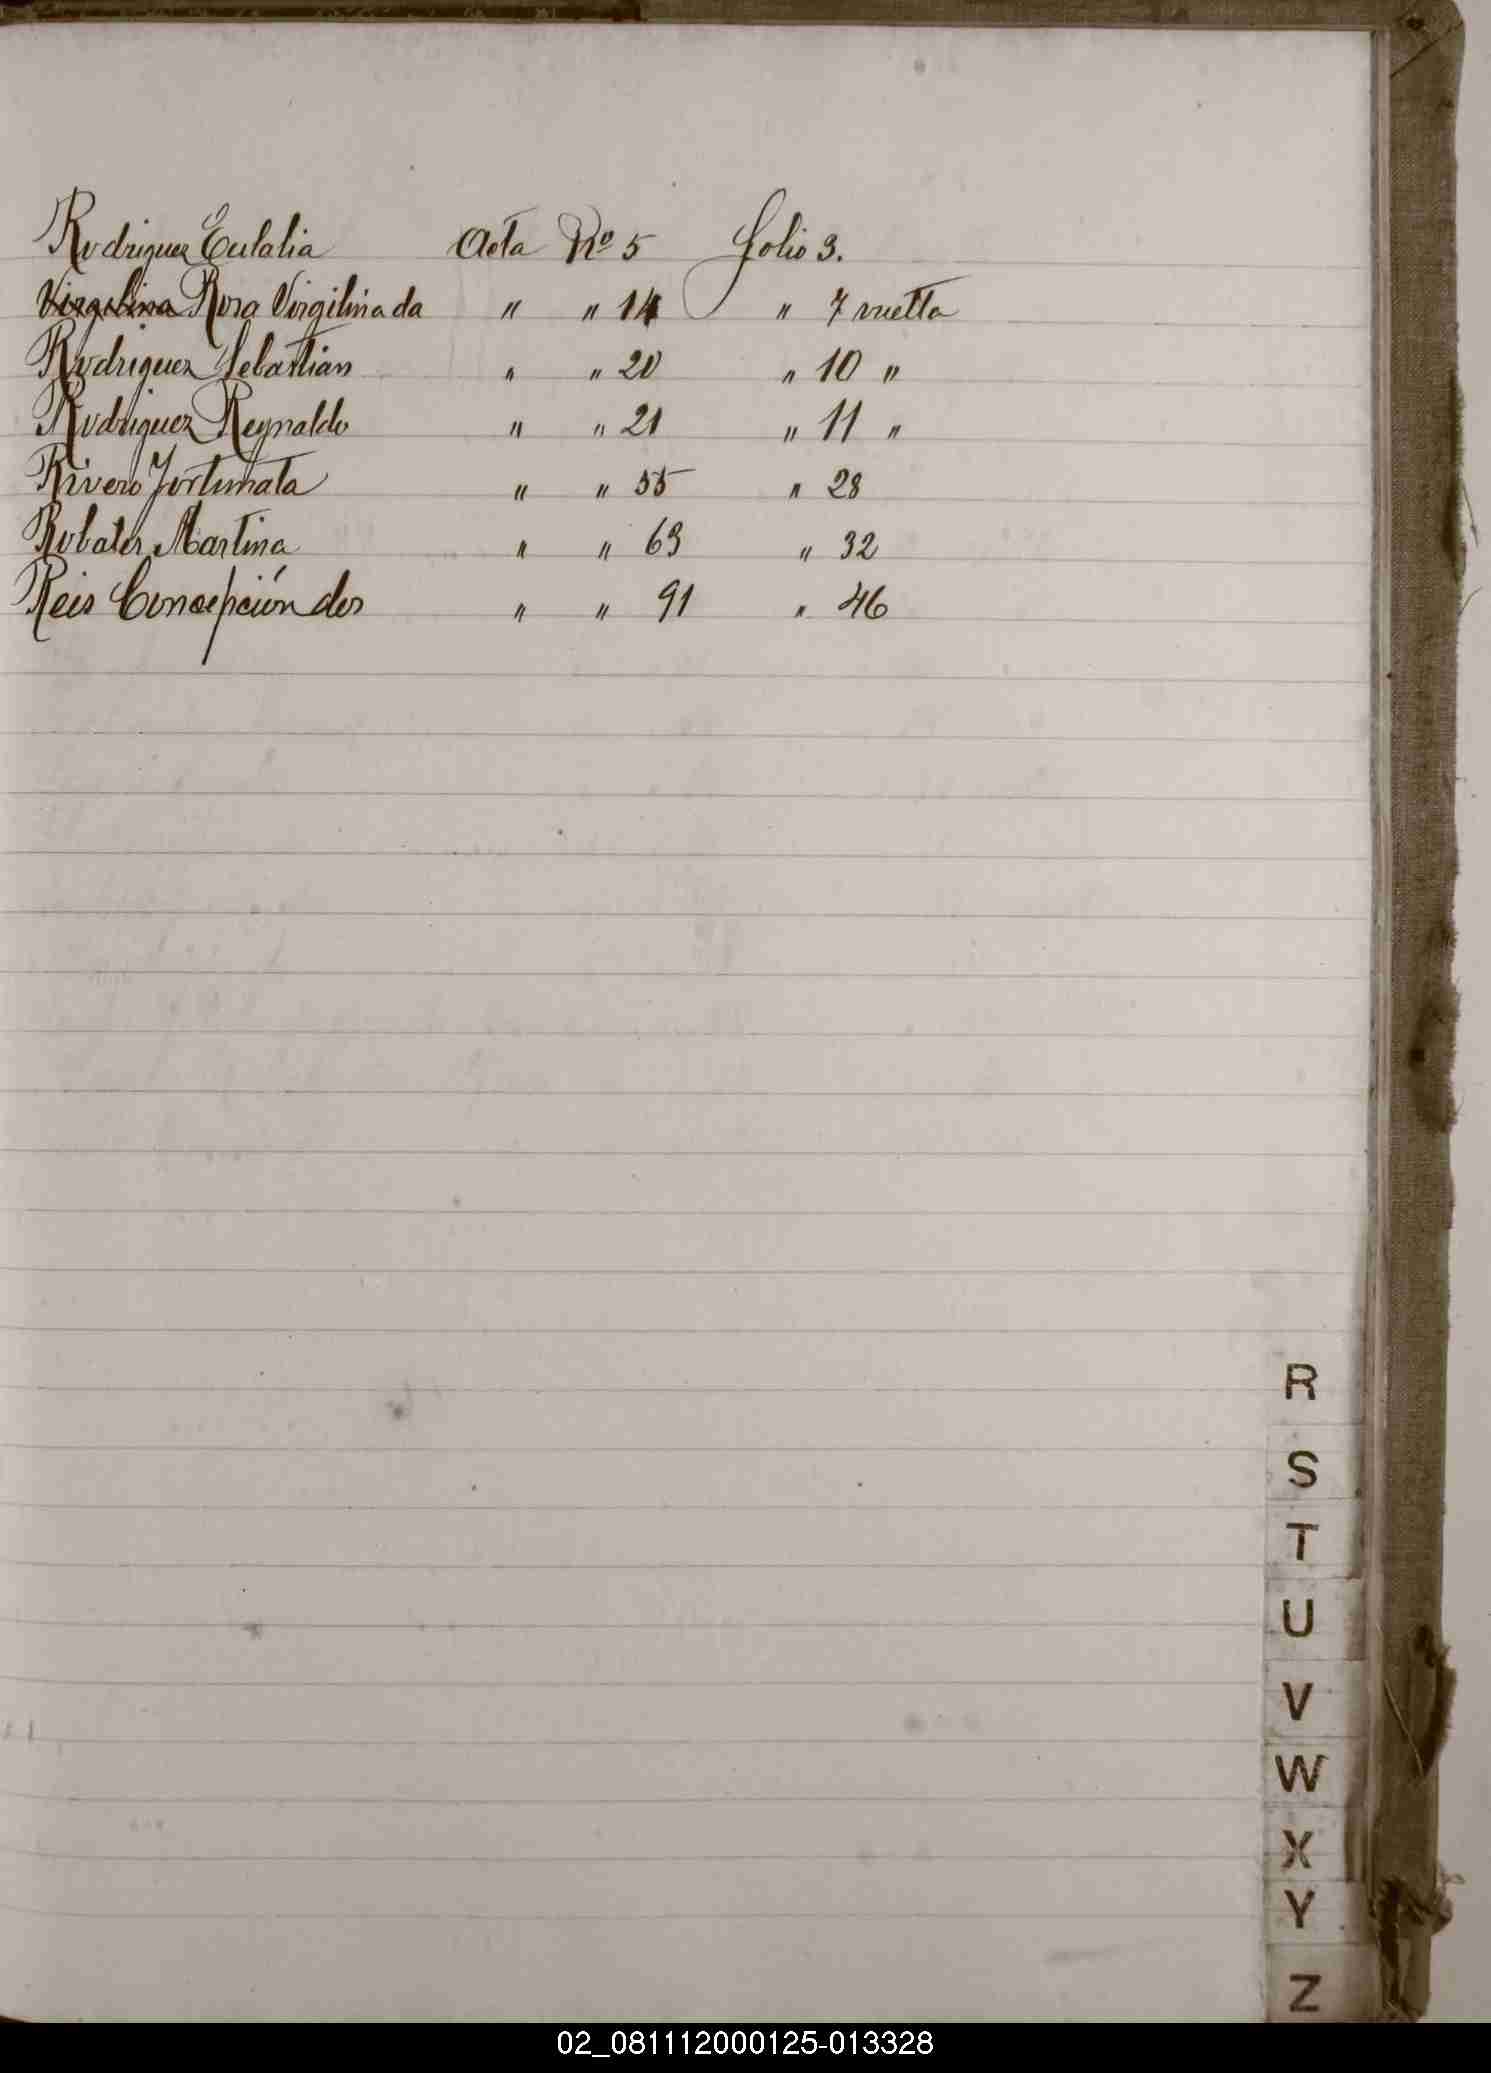 Rodriguez Eulalia Acta Nº 5 folio 3.
Virgilina Rosa Virgilina da " " 14 " 7 vuelta
Rodriguez Sebastian " " 20 " 10 "
Rodriguez Reynaldo " " 21 " 11 "
Rivero Fortunata " " 55 " 28
Robater Martina " " 63 " 32
Reis Concepción dos " " 91 " 46
R
S
T
U
V
W
X
Y
Z
02_081112000125-013328